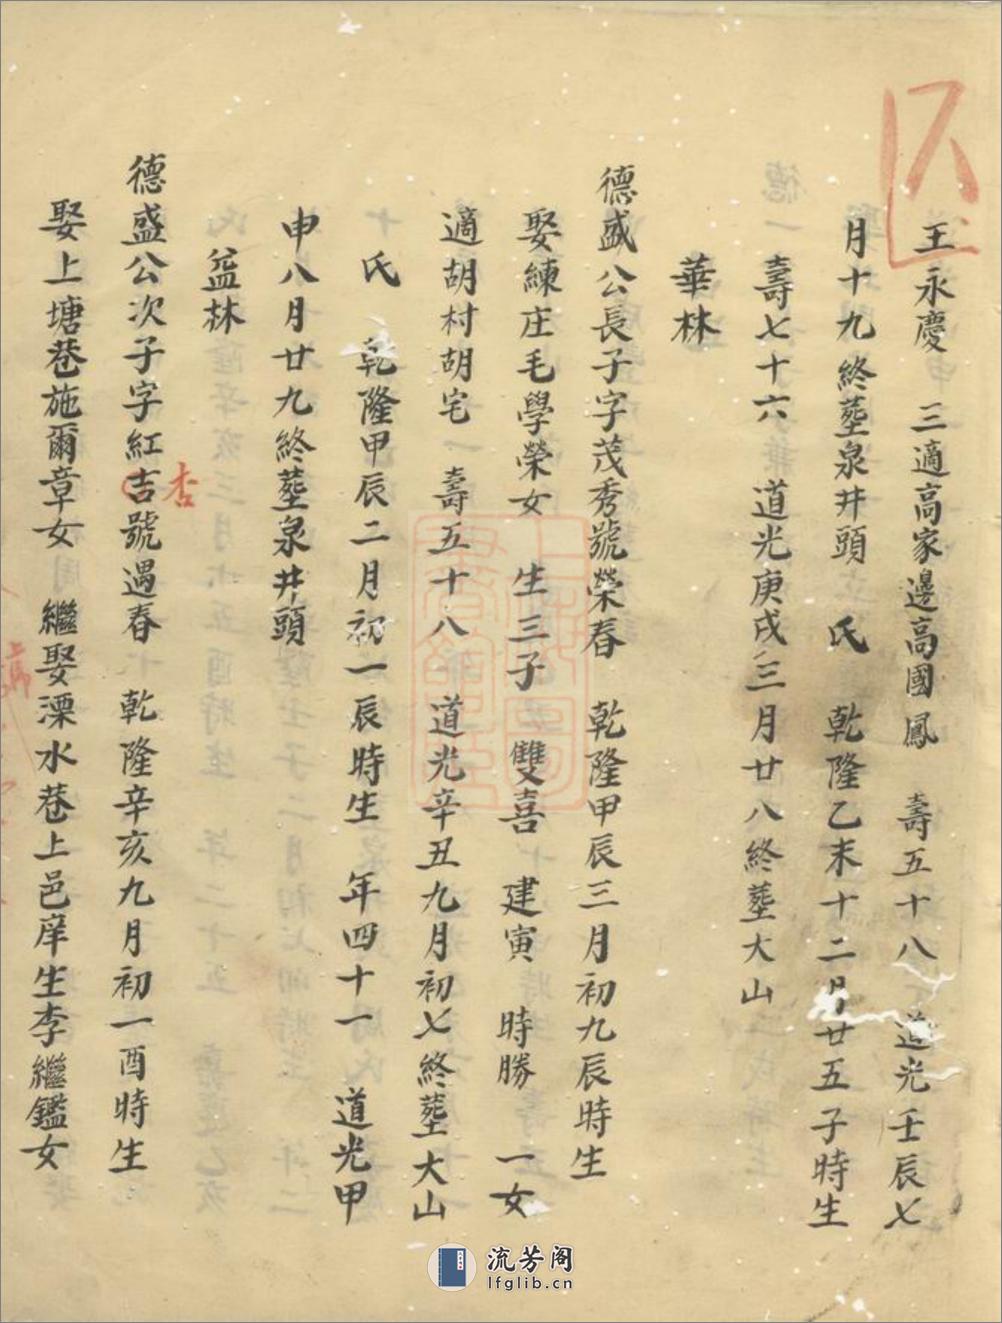 王永慶 三適高家邊高國鳳 壽五十八 道光壬辰七
月十九終塟泉井頭 氏 乾隆乙未十二月廿五子時生
壽七十六 道光庚戌三月廿八終塟大山
華林
德盛公長子字茂秀號榮春 乾隆甲辰三月初九辰時生
娶練庄毛學榮女 生三子 雙喜 建寅 時勝 一女
適胡村胡宅 壽五十八 道光辛丑九月初七終塟大山
氏 乾隆甲辰二月初一辰時生 年四十一 道光甲
申八月廿九終塟泉井頭
益林
德盛公次子字紅吉號遇春 乾隆辛亥九月初一酉時生
杏
娶上塘巷施爾章女 繼娶溧水巷上邑庠生李繼鑑女
流芳阁
lfglib.cn